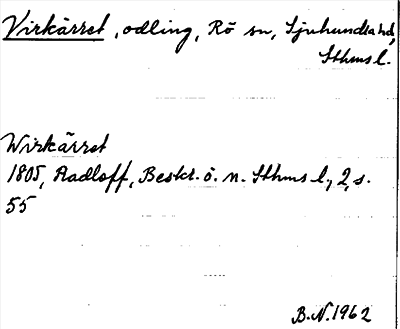 Virkärret, odling, Rö sn, Sjuhundra hd,
Sthms l.
Wirkärret
1805, Radloff, Beskr. ö. n. Sthms l., 2, s.
55
B.N. 1962